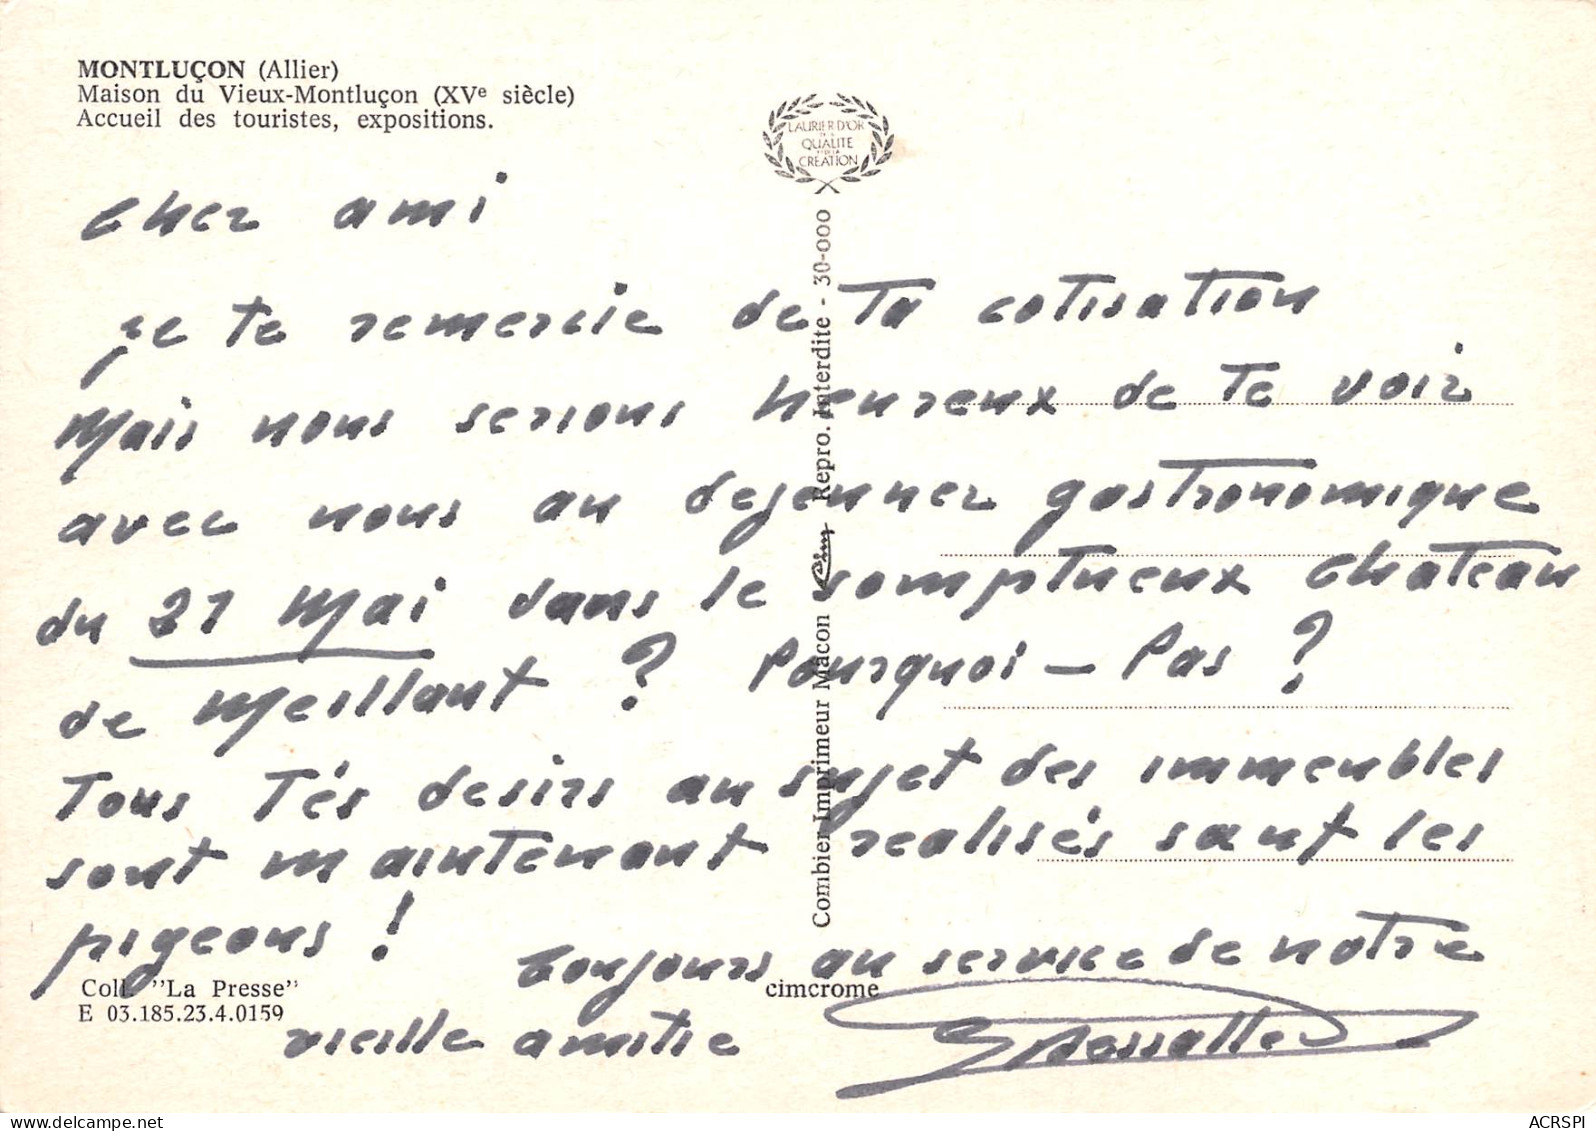 MONTLUÇON (Allier)
Maison du Vieux-Montluçon (XVe siècle)
Accueil des touristes, expositions.
LAURIER D'OR
DE LA
QUALITE
ET DE LA
CREATION
cher ami
je te remercie de Ta cotisation
Mais nous serions heureux de Te voir
avec nous au dejeuner gastronomique
du 21 Mai dans le somptueux chateau
de Meillant ? Pourquoi - Pas ?
Tous Tés desirs au sujet des immeubles
sont maintenant realisés sauf les
pigeons !
Toujours au service de notre
vieille amitie
Combier Imprimeur Macon Cim Repro. Interdite - 30-000
Coll. "La Presse"
E 03.185.23.4.0159
cimcrome
ACRSPI